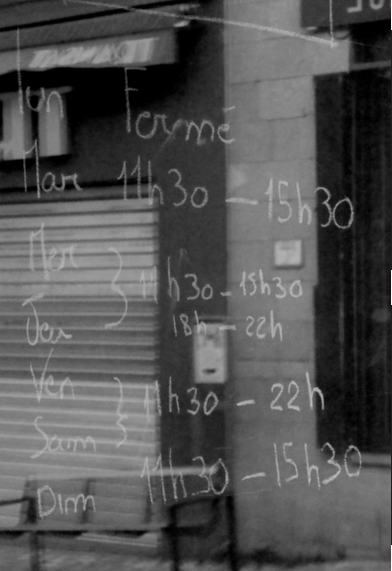 Lun Fermé
Mar 11h30 - 15h30
Mer } 11h30 - 15h30
Jeu } 18h - 22h
Ven } 11h30 - 22h
Sam }
Dim 11h30 - 15h30